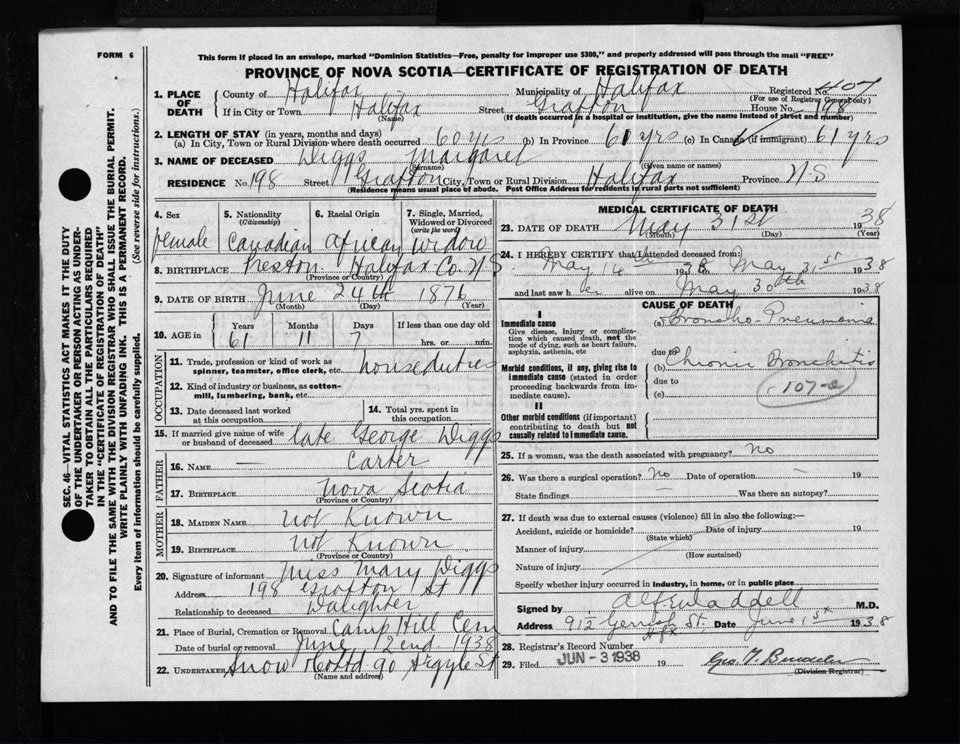 FORM 6
This form if placed in an envelope, marked "Dominion Statistics—Free, penalty for improper use $300," and properly addressed will pass through the mail "FREE"
PROVINCE OF NOVA SCOTIA—CERTIFICATE OF REGISTRATION OF DEATH
1. PLACE OF DEATH County of Halifax Municipality of Halifax Registered No.
(For use of Registrar General only)
If in City or Town Halifax Street Grafton House No. 198
(Name) (If death occurred in a hospital or institution, give the name instead of street and number)
2. LENGTH OF STAY (in years, months and days)
(a) In City, Town or Rural Division where death occurred 60 yrs (b) In Province 61 yrs (c) In Canada (if immigrant) 61 yrs
3. NAME OF DECEASED Diggs Margaret
(Surname) (Given name or names)
RESIDENCE No. 198 Street Grafton City, Town or Rural Division Halifax Province N-S
(Residence means usual place of abode. Post Office Address for residents in rural parts not sufficient)
4. Sex 5. Nationality 6. Racial Origin 7. Single, Married, Widowed or Divorced
(Citizenship) (write the word)
female Canadian African widow
8. BIRTHPLACE Preston Halifax Co. N.S
(Province or Country)
9. DATE OF BIRTH June 24th 1876
(Month) (Day) (Year)
10. AGE in Years Months Days If less than one day old
61 11 7 hrs. or min.
OCCUPATION
11. Trade, profession or kind of work as spinner, teamster, office clerk, etc. houseduties
12. Kind of industry or business, as cotton-mill, lumbering, bank, etc.
13. Date deceased last worked at this occupation
14. Total yrs. spent in this occupation
15. If married give name of wife or husband of deceased late George Diggs
FATHER
16. NAME — Carter
17. BIRTHPLACE Nova Scotia
(Province or Country)
MOTHER
18. MAIDEN NAME Not Known
19. BIRTHPLACE Not Known
(Province or Country)
20. Signature of informant Miss Mary Diggs
Address 198 Grafton St
Relationship to deceased Daughter
21. Place of Burial, Cremation or Removal Camp Hill Cem
Date of burial or removal June 2nd 1938
22. UNDERTAKER Snow & Co Ltd 90 Argyle St
(Name and address)
MEDICAL CERTIFICATE OF DEATH
23. DATE OF DEATH May 31st 1938
(Month) (Day) (Year)
24. I HEREBY CERTIFY that I attended deceased from:
May 14th 1938 to May 31st 1938
and last saw her alive on May 30th 1938
CAUSE OF DEATH
I
Immediate cause (a) Broncho-Pneumonia
Give disease, injury or complication which caused death, not the mode of dying, such as heart failure, asphyxia, asthenia, etc
due to
Morbid conditions, if any, giving rise to immediate cause (stated in order proceeding backwards from immediate cause).
(b) Chronic Bronchitis
due to
107-a
(c)
II
Other morbid conditions (if important) contributing to death but not causally related to immediate cause.
25. If a woman, was the death associated with pregnancy? No
26. Was there a surgical operation? No Date of operation — 19
State findings — Was there an autopsy?
27. If death was due to external causes (violence) fill in also the following:—
Accident, suicide or homicide? Date of injury 19
(State which)
Manner of injury
(How sustained)
Nature of injury
Specify whether injury occurred in industry, in home, or in public place
Signed by Alf E Waddell M.D.
Address 912 Gerrish St, Hfx Date June 1st 1938
28. Registrar's Record Number
29. Filed JUN - 3 1938 19
(Division Registrar)
SEC. 46—VITAL STATISTICS ACT MAKES IT THE DUTY
OF THE UNDERTAKER OR PERSON ACTING AS UNDER-
TAKER TO OBTAIN ALL THE PARTICULARS REQUIRED
IN THE "CERTIFICATE OF REGISTRATION OF DEATH"
AND TO FILE THE SAME WITH THE DIVISION REGISTRAR WHO SHALL ISSUE THE BURIAL PERMIT.
WRITE PLAINLY WITH UNFADING INK. THIS IS A PERMANENT RECORD.
Every item of information should be carefully supplied. (See reverse side for instructions.)